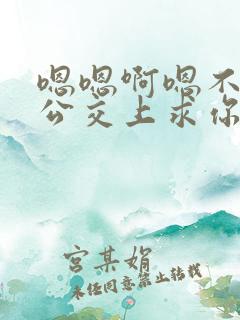 嗯嗯啊嗯不
公交上求你
宫某娟
未经同意禁止转载